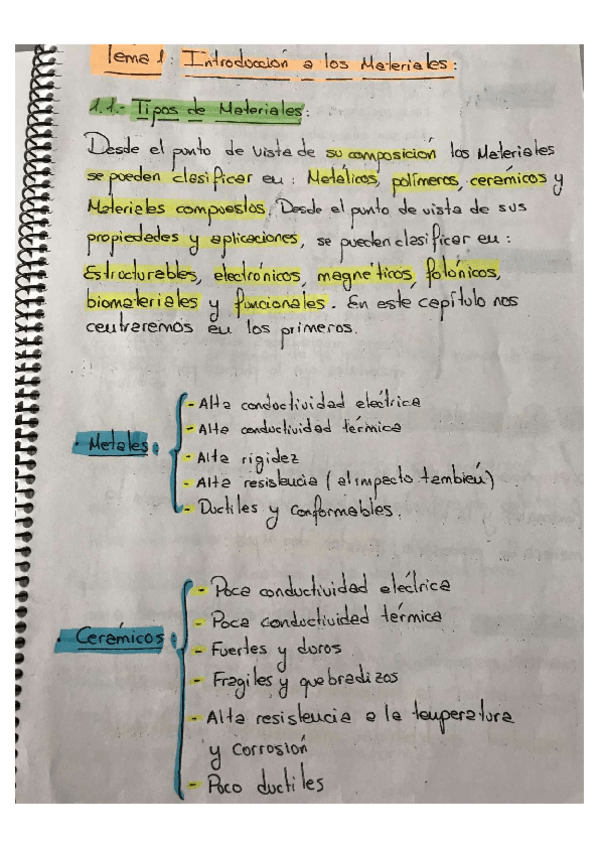 Tema 1: Introducción a los Materiales:
1.1.- Tipos de Materiales:
Desde el punto de vista de su composición los Materiales
se pueden clasificar en: Metálicos, polímeros, cerámicos y
Materiales compuestos. Desde el punto de vista de sus
propiedades y aplicaciones, se pueden clasificar en:
Estructurables, electrónicos, magnéticos, fotónicos,
biomateriales y funcionales. En este capítulo nos
centraremos en los primeros.
· Metales:
- Alta conductividad eléctrica
- Alta conductividad térmica
- Alta rigidez
- Alta resistencia (al impacto también)
- Ductiles y conformables.
· Cerámicos:
- Poca conductividad eléctrica
- Poca conductividad térmica
- Fuertes y duros
- Fragiles y quebradizos
- Alta resistencia a la temperatura
y corrosión
- Poco ductiles